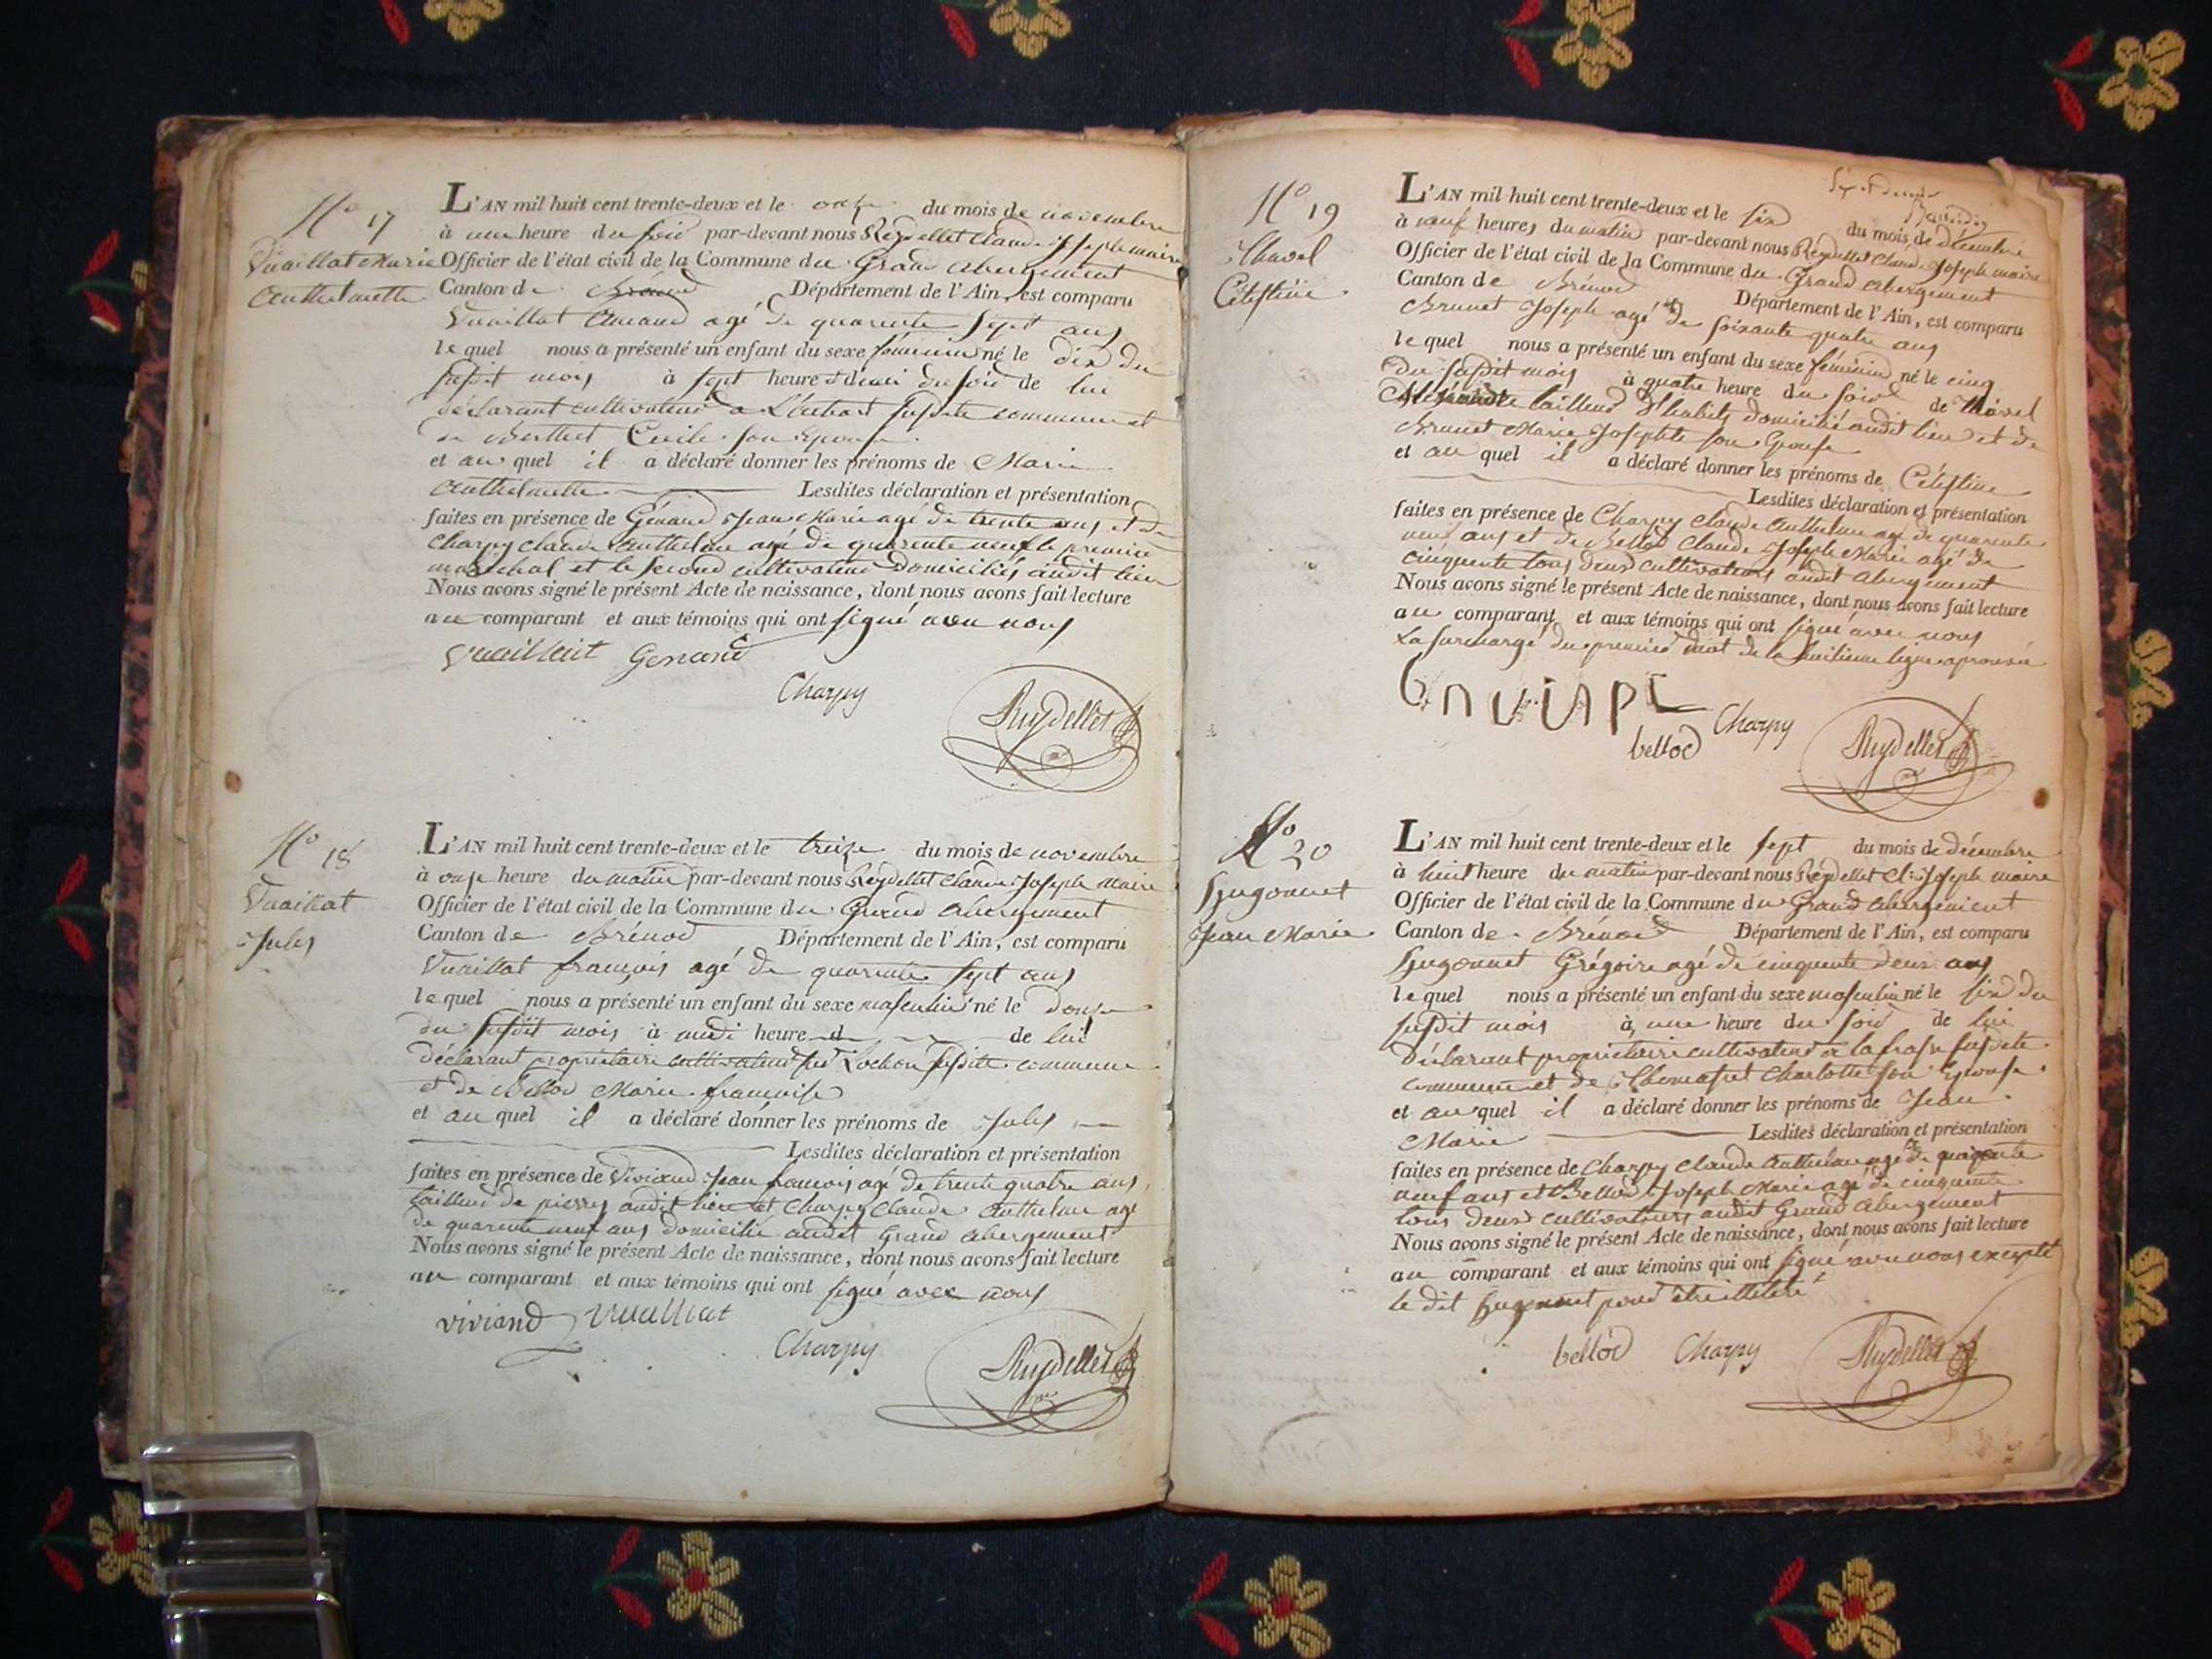 N° 17
Vuaillat Marie
Anthelmette
L'AN mil huit cent trente-deux et le onze du mois de novembre
à une heure du soir par-devant nous Reydellet Claude Joseph maire
Officier de l'état civil de la Commune du Grand abergement
Canton de Brénod Département de l'Ain, est comparu
Vuaillat Amand agé de quarante sept ans
lequel nous a présenté un enfant du sexe féminin né le dix du
susdit mois à sept heure et demi du soir de lui
déclarant cultivateur à susdite commune et
de Berthet Cecile son épouse
et auquel il a déclaré donner les prénoms de Marie
anthelmette Lesdites déclaration et présentation
faites en présence de Génand Jean Marie agé de trente ans et de
Charpy Claude Anthelme agé de quarente neuf le premier
maréchal et le second cultivateur domiciliés audit lieu
Nous avons signé le présent Acte de naissance, dont nous avons fait lecture
au comparant et aux témoins qui ont signé avec nous
Vuaillat Genand
Charpy
Reydellet
N° 18
Vuaillat
Jules
L'AN mil huit cent trente-deux et le treize du mois de novembre
à onze heure du matin par-devant nous Reydellet Claude Joseph Maire
Officier de l'état civil de la Commune du Grand abergement
Canton de Brénod Département de l'Ain, est comparu
Vuaillat françois agé de quarente sept ans
lequel nous a présenté un enfant du sexe masculin né le douze
du susdit mois à midi heure d de lui
déclarant propriétaire cultivateur sur Lochon susdite commune
et de Bellod Marie françoise
et auquel il a déclaré donner les prénoms de Jules
Lesdites déclaration et présentation
faites en présence de Viviand Jean françois agé de trente quatre ans,
tailleur de pierres audit lieu et Charpy Claude Anthelme agé
de quarente neuf ans domicilié audit Grand abergement
Nous avons signé le présent Acte de naissance, dont nous avons fait lecture
au comparant et aux témoins qui ont signé avec nous
viviand Vuaillat
Charpy
Reydellet
N° 19
Thavel
Célestine
L'AN mil huit cent trente-deux et le six du mois de décembre
à neuf heures du matin par-devant nous Reydellet Claude Joseph maire
Officier de l'état civil de la Commune du Grand abergement
Canton de Brénod Département de l'Ain, est comparu
Brunet Joseph agé de soixante quatre ans
lequel nous a présenté un enfant du sexe féminin né le cinq
du susdit mois à quatre heure du soir de Thavel
tailleur d'habits domicilié audit lieu et de
Brunet Marie Josephte son épouse
et auquel il a déclaré donner les prénoms de Célestine
Lesdites déclaration et présentation
faites en présence de Charpy Claude Anthelme agé de quarente
neuf ans et de Bellod Claude Joseph Marie agé de
cinquente tous deux cultivateurs audit abergement
Nous avons signé le présent Acte de naissance, dont nous avons fait lecture
au comparant et aux témoins qui ont signé avec nous
La surcharge du premier mot de la huitieme ligne aprouvée
Charpy
bellod
Reydellet
N° 20
Hugonnet
Jean Marie
L'AN mil huit cent trente-deux et le sept du mois de décembre
à huit heure du matin par-devant nous Reydellet Cl. Joseph maire
Officier de l'état civil de la Commune du Grand abergement
Canton de Brénod Département de l'Ain, est comparu
Hugonnet Grégoire agé de cinquente deux ans
lequel nous a présenté un enfant du sexe masculin né le six du
susdit mois à une heure du soir de lui
déclarant propriétaire cultivateur à susdite
commune et de Thomasset Charlotte son épouse
et auquel il a déclaré donner les prénoms de Jean
Marie Lesdites déclaration et présentation
faites en présence de Charpy Claude Anthelme agé de quarente
neuf ans et Bellod Joseph Marie agé de cinquente
tous deux cultivateurs audit Grand abergement
Nous avons signé le présent Acte de naissance, dont nous avons fait lecture
au comparant et aux témoins qui ont signé avec nous excepté
le dit Hugonnet pour être illitéré
bellod Charpy
Reydellet